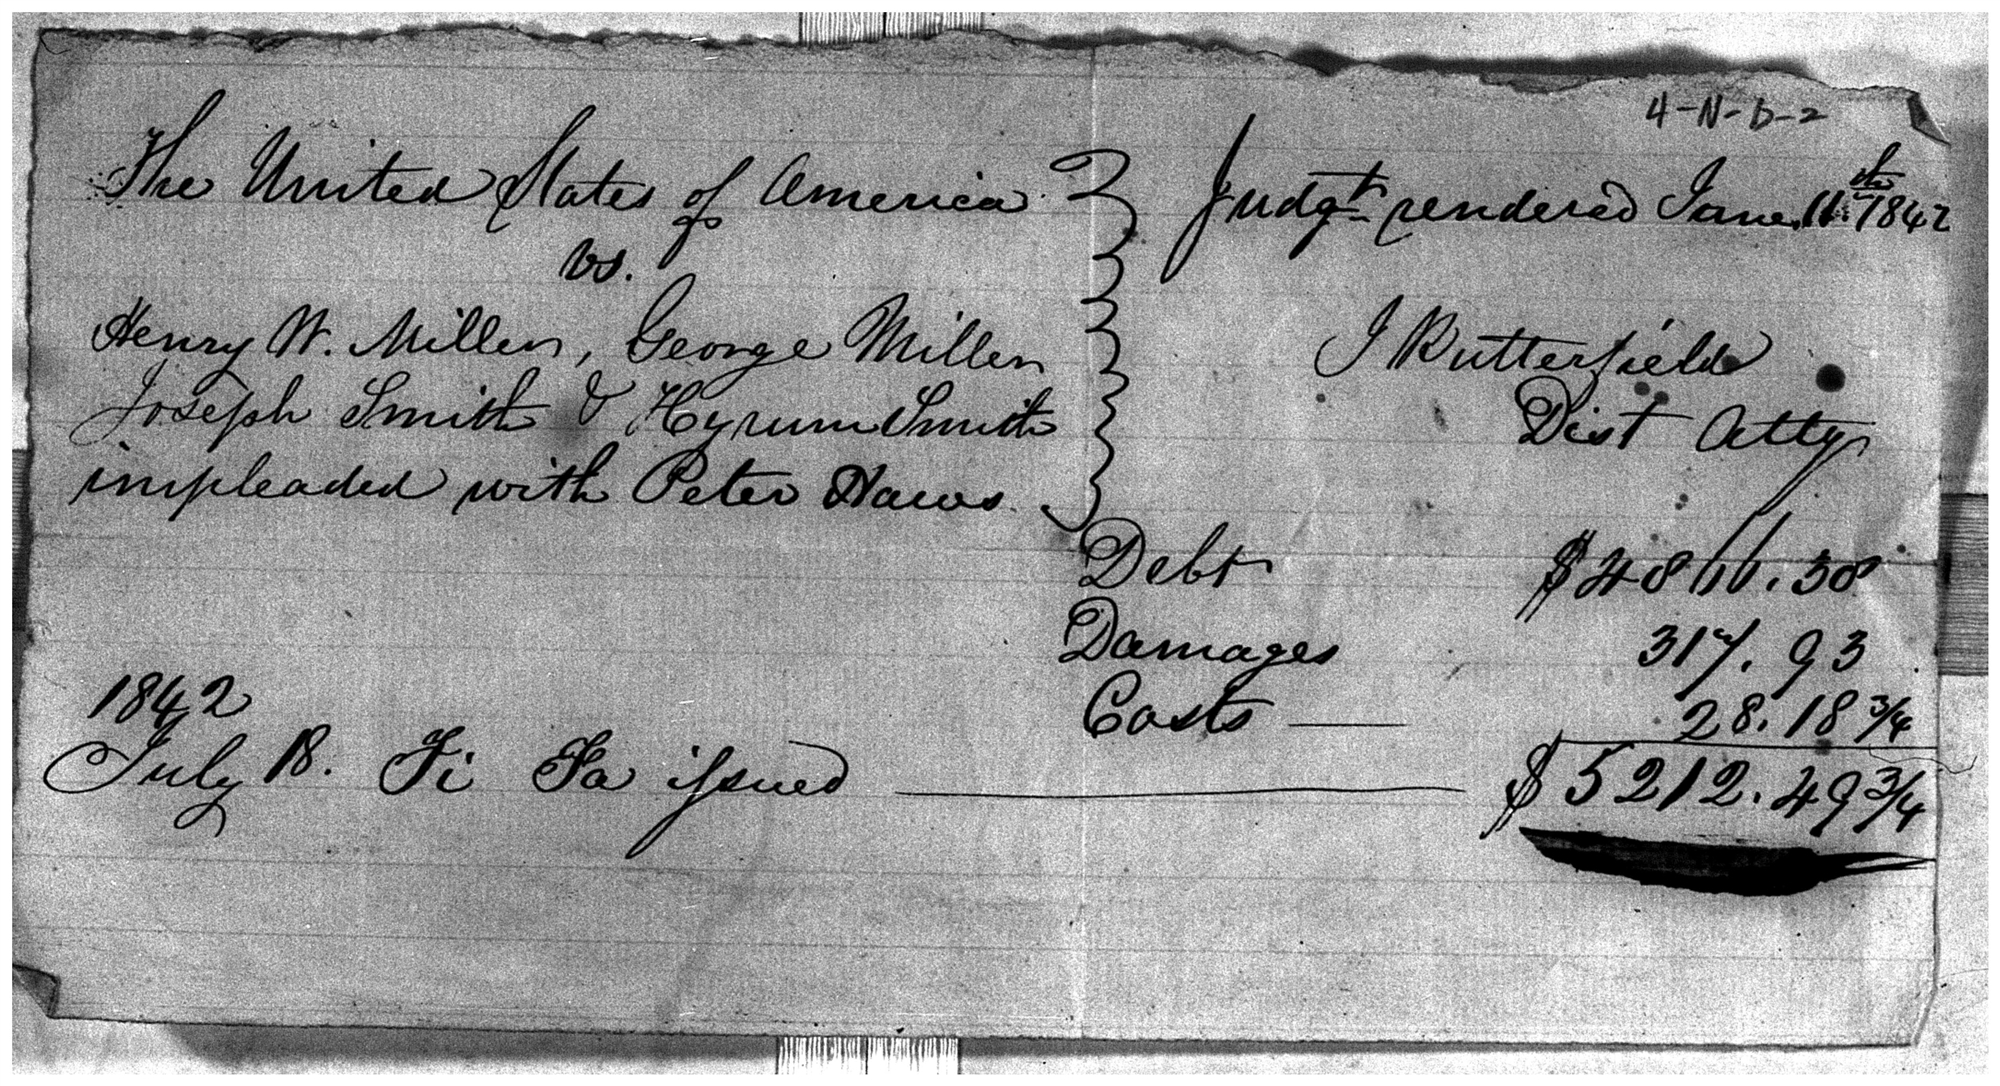 4-N-b-2
The United States of America
vs.
Henry W. Miller, George Miller
Joseph Smith & Hyrum Smith
impleaded with Peter Haws.
Judgt. rendered June 11th 1842
J Butterfield
Dist Atty
Debt $4866.38
Damages 317.93
Costs — 28.18 3/4
1842
July 18. Fi Fa issued — $5212.49 3/4